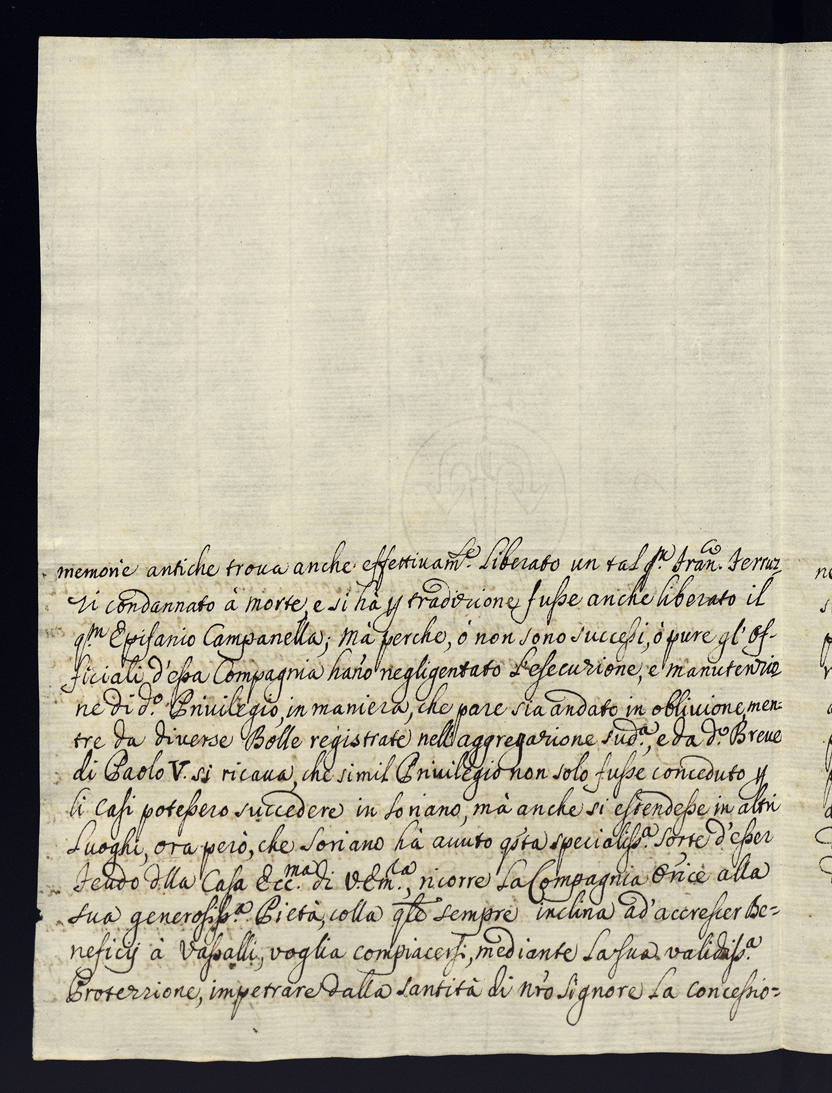 memorie antiche troua anche effettivam.te liberato un tal q.m Fran.co Ferruz
zi condannato à morte, e si hà p tradizione fusse anche liberato il
q.m Epifanio Campanella; mà perche, ò non sono successi, ò pure gl'Of-
ficiali d'essa Compagnia hanno negligentato l'esecuzione, e manutenzio
ne di d.o Priuilegio, in maniera, che pare sia andato in obliuione, men=
tre da diuerse Bolle registrate nell'aggregazione sud.a, e da d.o Breue
di Paolo V. si ricaua, che simil Priuilegio non solo fusse conceduto p
li casi potessero succedere in Soriano, mà anche si estendesse in altri
Luoghi, ora però, che Soriano hà auuto q.sta specialiss.a sorte d'esser
feudo d.lla Casa Ecc.ma di V. Em.za, ricorre la Compagnia Or.ice alla
sua generosiss.a Pietà, colla q.le sempre inclina ad'accrescer Be=
neficij à Vassalli, voglia compiacersi, mediante la sua validiss.a
Protezzione, impetrare dalla Santità di n.ro Signore la concessio=